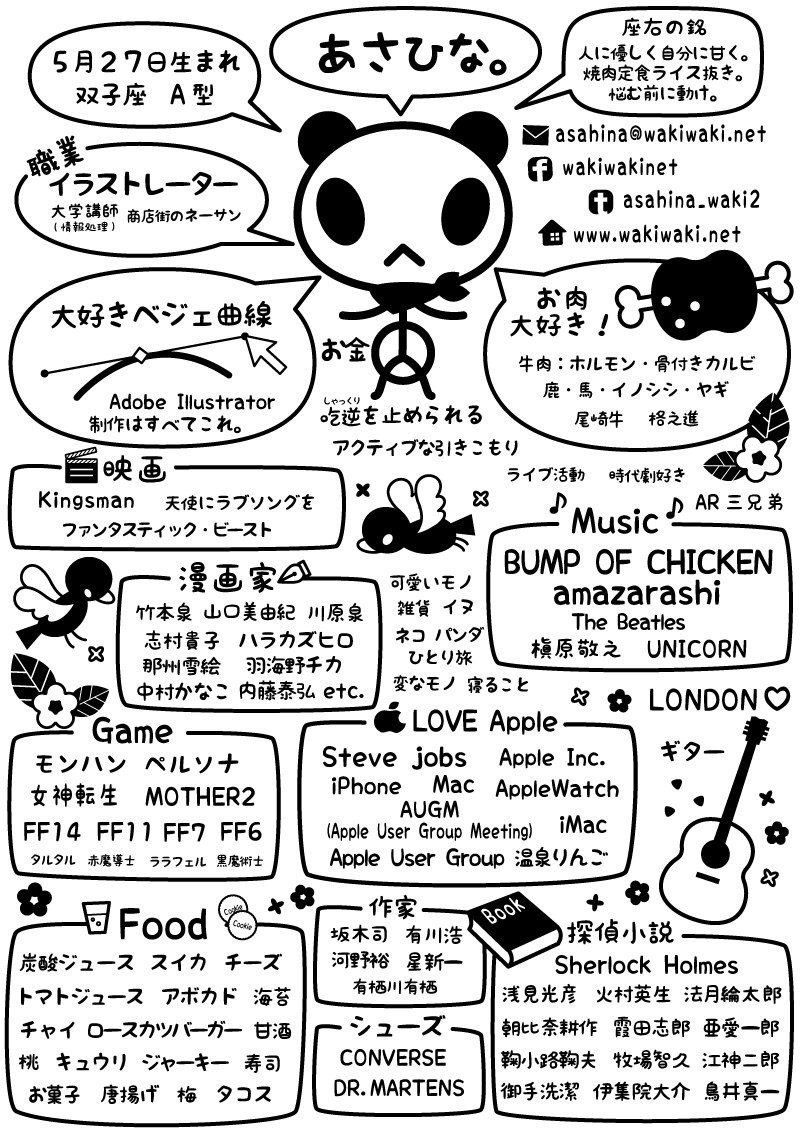 ５月２７日生まれ
双子座　A型
あさひな。
座右の銘
人に優しく自分に甘く。
焼肉定食ライス抜き。
悩む前に動け。
職業
イラストレーター
大学講師
(情報処理)
商店街のネーサン
asahina@wakiwaki.net
wakiwakinet
asahina_waki2
www.wakiwaki.net
大好きベジェ曲線
Adobe Illustrator
制作はすべてこれ。
お金
お肉
大好き！
牛肉：ホルモン・骨付きカルビ
鹿・馬・イノシシ・ヤギ
尾崎牛　格之進
しゃっくり
吃逆を止められる
アクティブな引きこもり
ライブ活動　時代劇好き
AR 三兄弟
映画
Kingsman　天使にラブソングを
ファンタスティック・ビースト
Music
BUMP OF CHICKEN
amazarashi
The Beatles
槇原敬之　UNICORN
漫画家
竹本泉 山口美由紀 川原泉
志村貴子　ハラカズヒロ
那州雪絵　羽海野チカ
中村かなこ 内藤泰弘 etc.
可愛いモノ
雑貨 イヌ
ネコ パンダ
ひとり旅
変なモノ 寝ること
LONDON
ギター
Game
モンハン ペルソナ
女神転生　MOTHER2
FF14 FF11 FF7 FF6
タルタル 赤魔導士 ララフェル 黒魔術士
LOVE Apple
Steve jobs　Apple Inc.
iPhone　Mac　AppleWatch
AUGM
(Apple User Group Meeting)　iMac
Apple User Group 温泉りんご
Food
Cookie
Cookie
炭酸ジュース スイカ チーズ
トマトジュース アボカド 海苔
チャイ ロースカツバーガー 甘酒
桃 キュウリ ジャーキー 寿司
お菓子 唐揚げ 梅 タコス
作家
坂木司　有川浩
河野裕　星新一
有栖川有栖
シューズ
CONVERSE
DR.MARTENS
Book
探偵小説
Sherlock Holmes
浅見光彦 火村英生 法月綸太郎
朝比奈耕作 霞田志郎 亜愛一郎
鞠小路鞠夫 牧場智久 江神二郎
御手洗潔 伊集院大介 鳥井真一